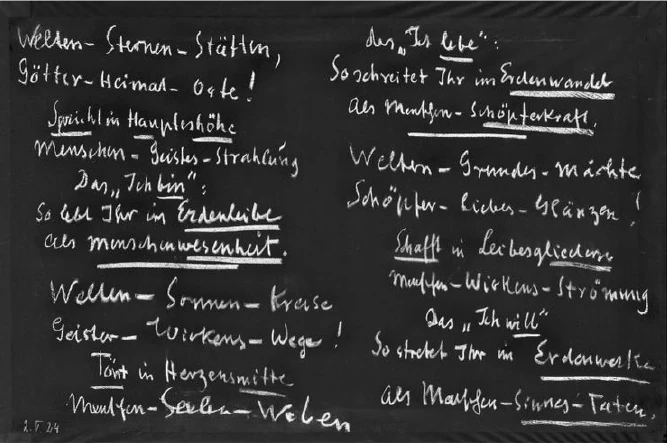 Welten-Sternen-Stätten,
Götter-Heimat-Orte!
Spricht in Haupteshöhe
Menschen-Geistes-Strahlung
Das „Ich bin“:
So lebt Ihr im Erdenleibe
als Menschenwesenheit.
Welten-Sonnen-Kreise
Geister-Wirkens-Wege!
Tönt in Herzensmitte
Menschen-Seelen-Weben
das „Ich lebe“:
So schreitet Ihr im Erdenwandel
als Menschen-Schöpferkraft.
Welten-Grundes-Mächte
Schöpfer-Liebes-Glänzen!
Schafft in Leibesgliedern
Menschen-Wirkens-Strömung
Das „Ich will“
So strebet Ihr im Erdenwerke
als Menschen-Sinnes-Taten.
2. V 24